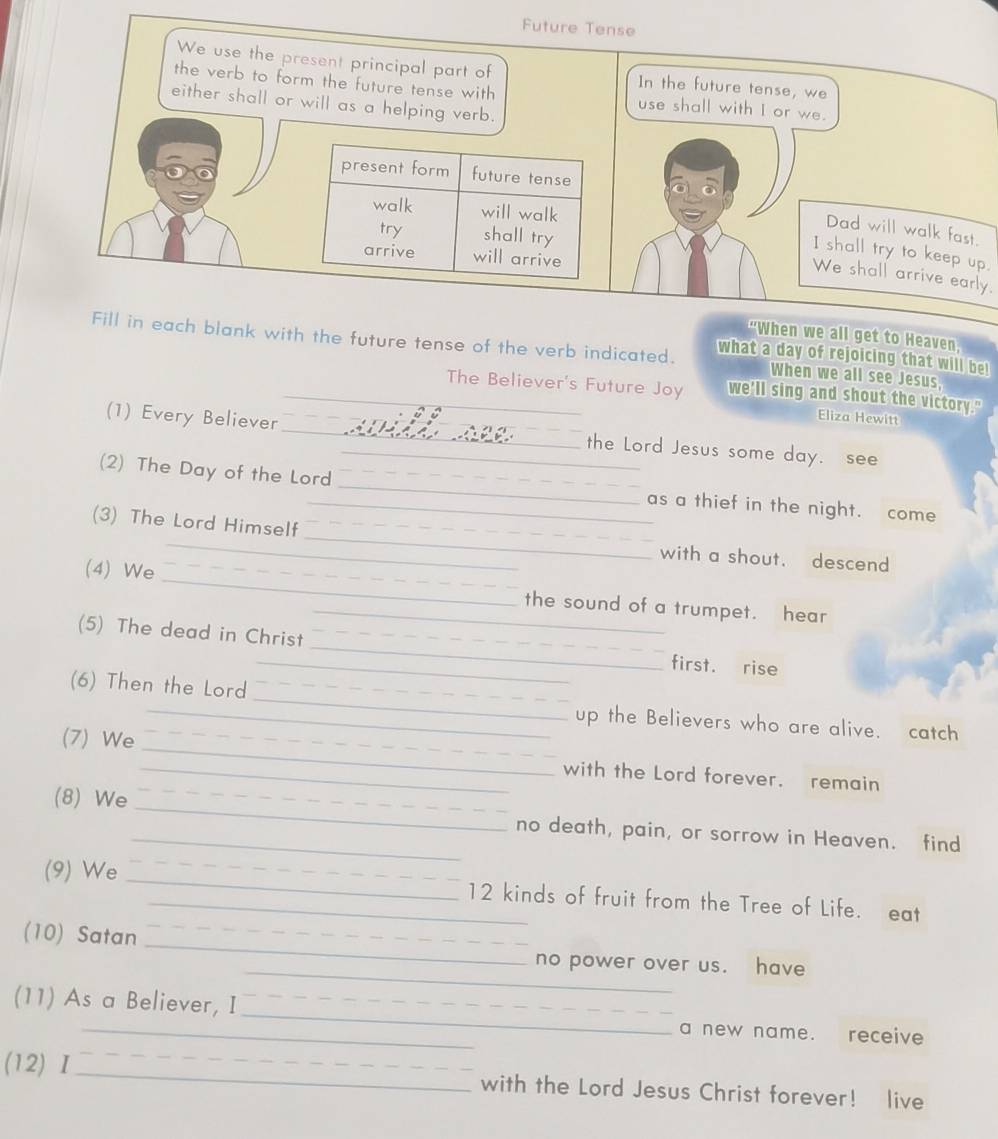 Future Tense
We use the present principal part of
the verb to form the future tense with
either shall or will as a helping verb.
In the future tense, we
use shall with I or we.
present form future tense
walk will walk
try shall try
arrive will arrive
Dad will walk fast.
I shall try to keep up.
We shall arrive early.
Fill in each blank with the future tense of the verb indicated.
"When we all get to Heaven,
what a day of rejoicing that will be!
When we all see Jesus,
we'll sing and shout the victory."
Eliza Hewitt
The Believer's Future Joy
(1) Every Believer will see the Lord Jesus some day. see
(2) The Day of the Lord as a thief in the night. come
(3) The Lord Himself with a shout. descend
(4) We the sound of a trumpet. hear
(5) The dead in Christ first. rise
(6) Then the Lord up the Believers who are alive. catch
(7) We with the Lord forever. remain
(8) We no death, pain, or sorrow in Heaven. find
(9) We 12 kinds of fruit from the Tree of Life. eat
(10) Satan no power over us. have
(11) As a Believer, I a new name. receive
(12) I with the Lord Jesus Christ forever! live